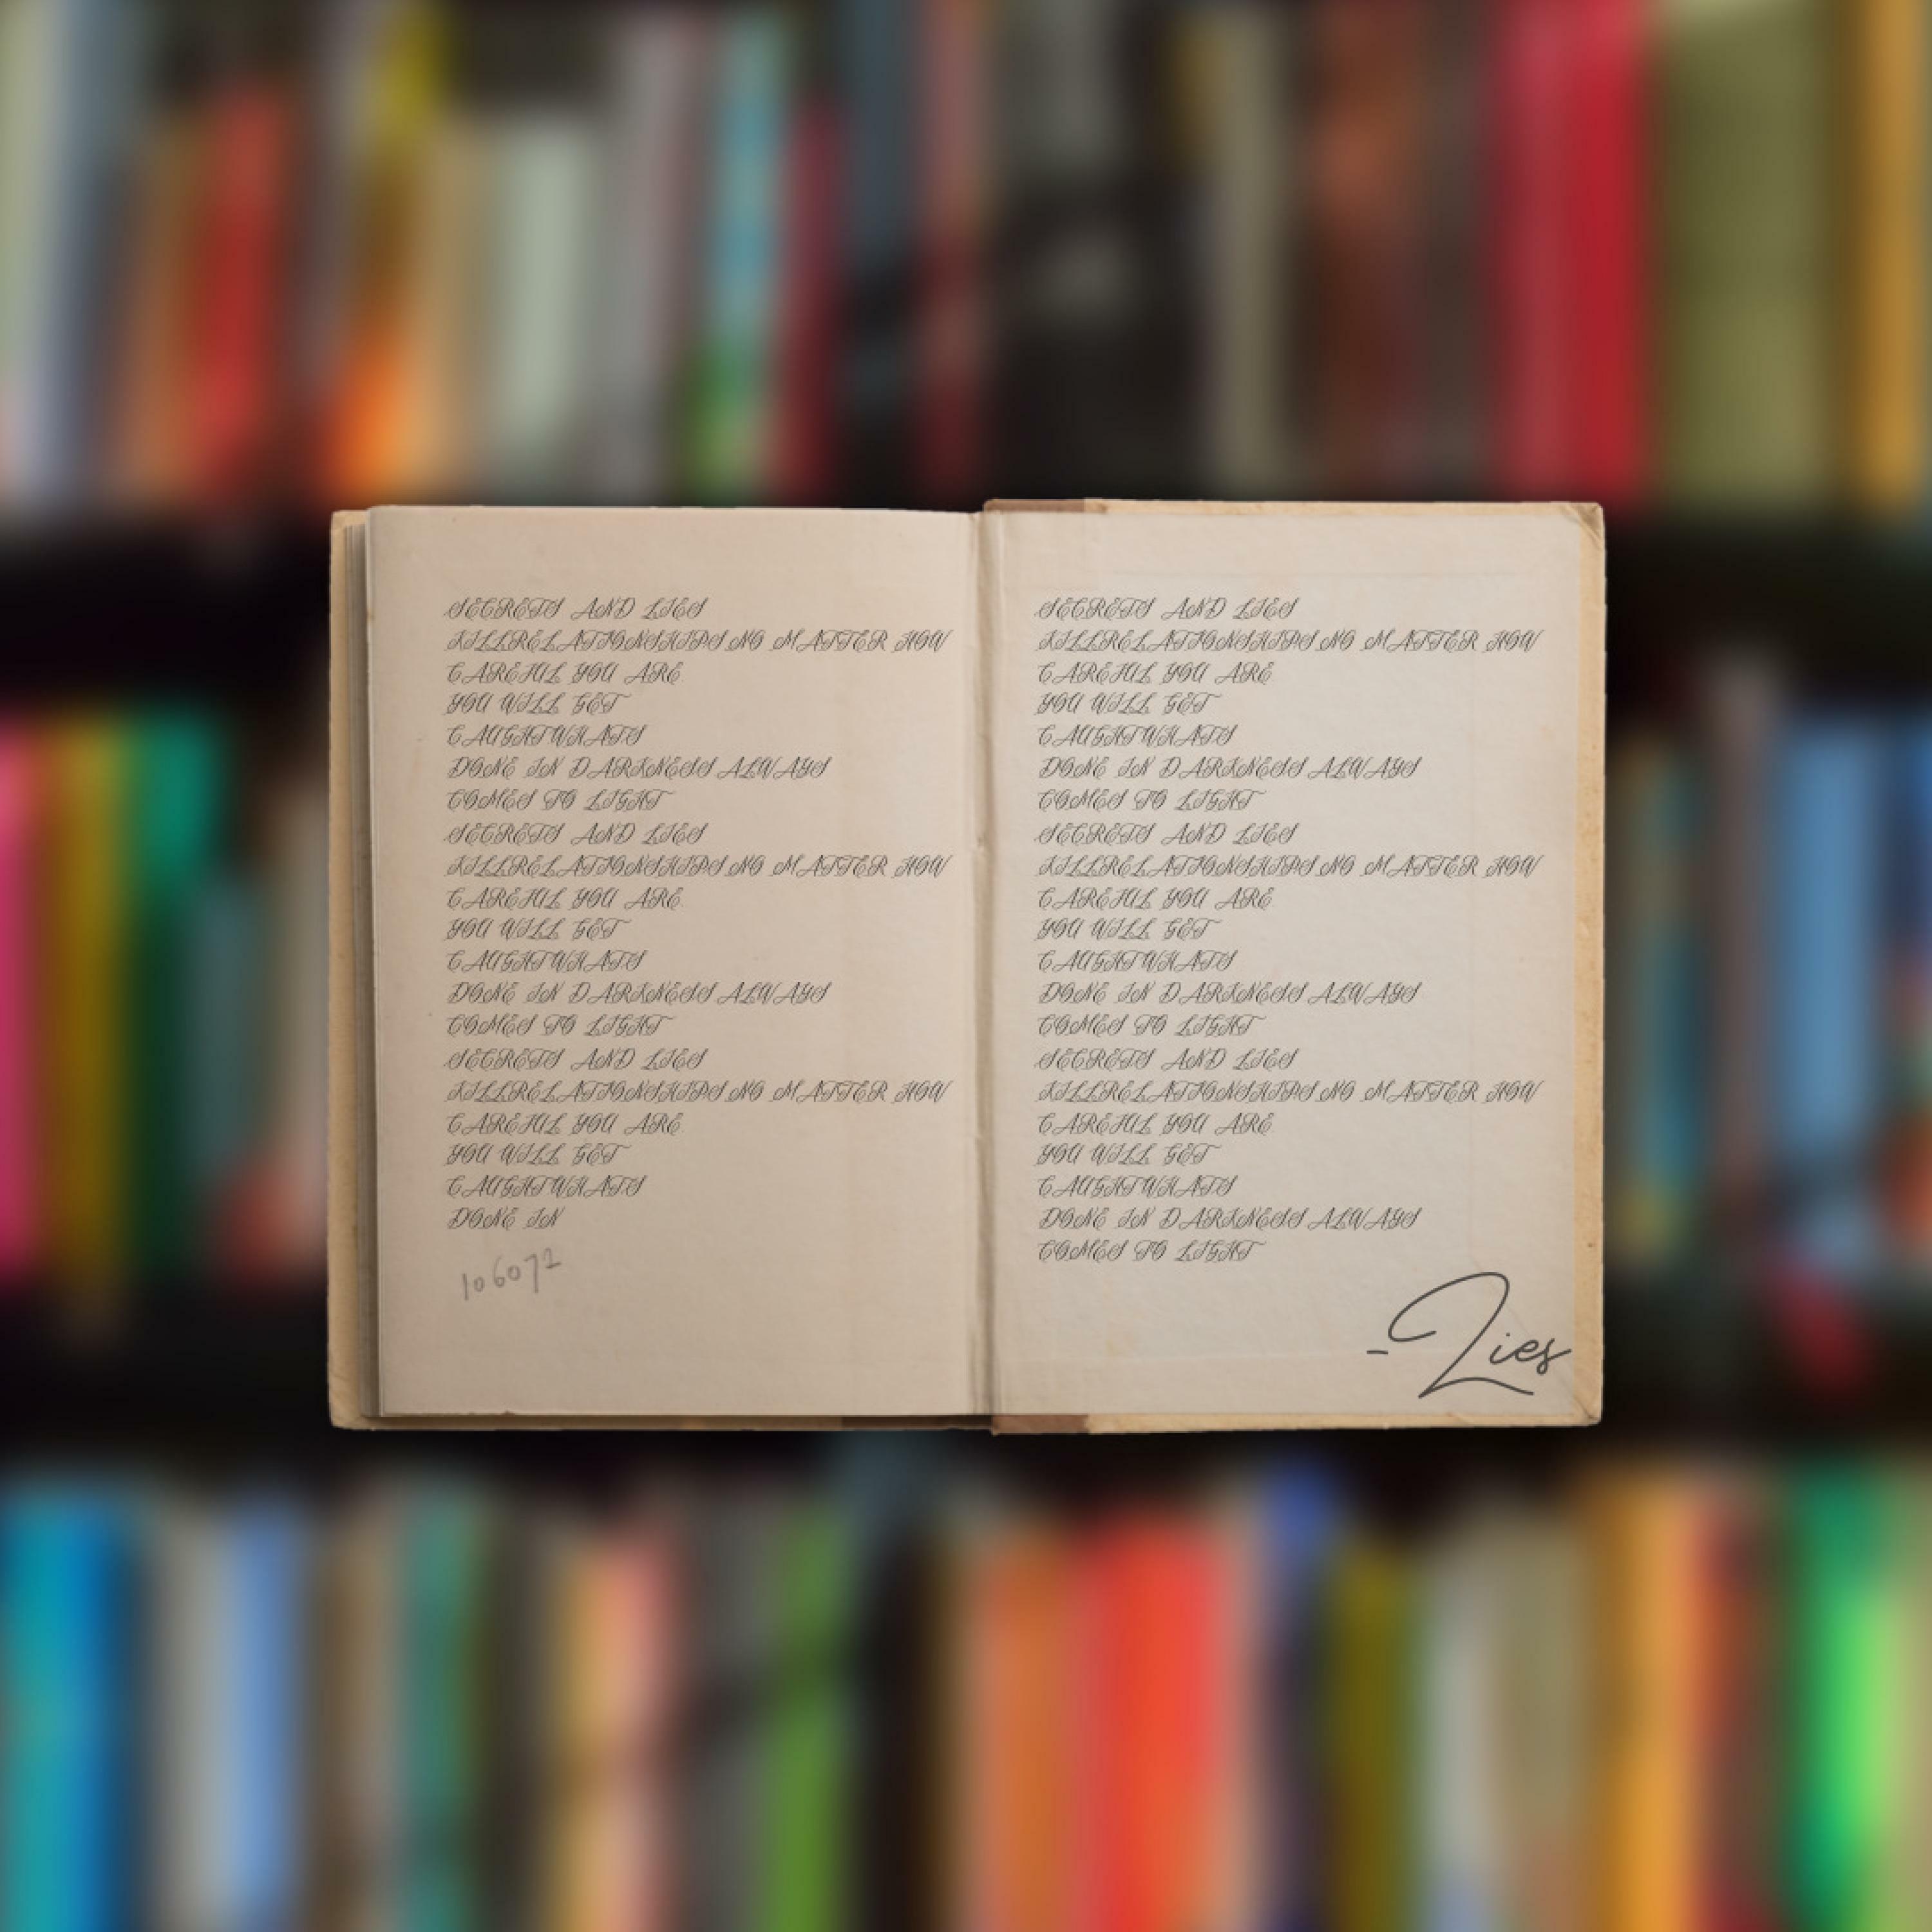 SECRETS AND LIES
KILLRELATIONSHIPS NO MATTER HOW
CAREFUL YOU ARE.
YOU WILL GET
CAUGHTWHATS
DONE IN DARKNESS ALWAYS
COMES TO LIGHT
SECRETS AND LIES
KILLRELATIONSHIPS NO MATTER HOW
CAREFUL YOU ARE.
YOU WILL GET
CAUGHTWHATS
DONE IN DARKNESS ALWAYS
COMES TO LIGHT
SECRETS AND LIES
KILLRELATIONSHIPS NO MATTER HOW
CAREFUL YOU ARE.
YOU WILL GET
CAUGHTWHATS
DONE IN
106072
SECRETS AND LIES
KILLRELATIONSHIPS NO MATTER HOW
CAREFUL YOU ARE.
YOU WILL GET
CAUGHTWHATS
DONE IN DARKNESS ALWAYS
COMES TO LIGHT
SECRETS AND LIES
KILLRELATIONSHIPS NO MATTER HOW
CAREFUL YOU ARE.
YOU WILL GET
CAUGHTWHATS
DONE IN DARKNESS ALWAYS
COMES TO LIGHT
SECRETS AND LIES
KILLRELATIONSHIPS NO MATTER HOW
CAREFUL YOU ARE.
YOU WILL GET
CAUGHTWHATS
DONE IN DARKNESS ALWAYS
COMES TO LIGHT
-Lies